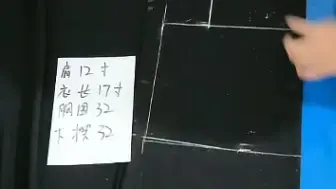 肩12寸
衣长17寸
胸围32
下摆32